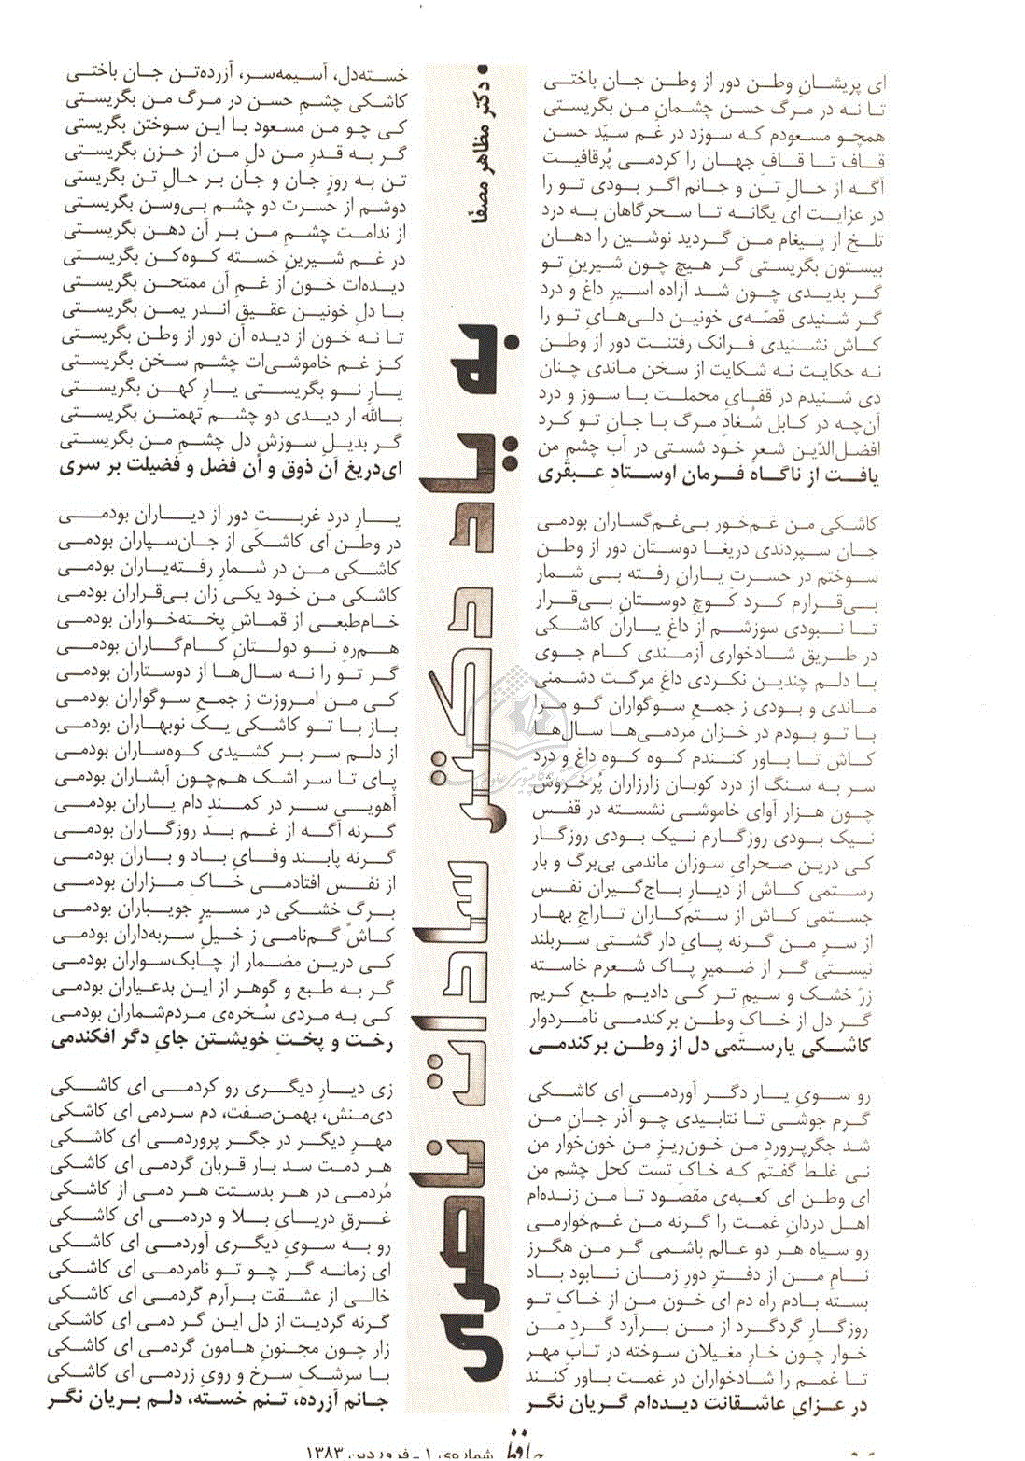 به یاد دکتر سادات ناصری
• دکتر مظاهر مصفّا
ای پریشان وطن دور از وطن جان باختی خسته‌دل، آسیمه‌سر، آزرده‌تن جان باختی
تا نه در مرگ حسن چشمانِ من بگریستی کاشکی چشمِ حسن در مرگ من بگریستی
همچو مسعودم که سوزد در غم سیّد حسن کی چو من مسعود با این سوختن بگریستی
قاف تا قافِ جهان را کردمی پُرقافیت گر به قدرِ من دلِ من از حزن بگریستی
آگه از حالِ تن و جانم اگر بودی تو را تن به روزِ جان و جان بر حالِ تن بگریستی
در عزایت ای یگانه تا سحرگاهان به درد دوشم از حسرت دو چشم بی‌وسن بگریستی
تلخ از پیغام من گردید نوشین را دهان از ندامت چشمِ من بر آن دهن بگریستی
بیستون بگریستی گر هیچ چون شیرینِ تو در غم شیرینِ خسته کوه‌کن بگریستی
گر بدیدی چون شد آزاده اسیرِ داغ و درد دیده‌ات خون از غمِ آن ممتحن بگریستی
گر شنیدی قصّه‌ی خونین دلی‌هایِ تو را با دلِ خونین عقیق اندر یمن بگریستی
کاش نشنیدی فرانک رفتنت دور از وطن تا نه خون از دیده آن دور از وطن بگریستی
نه حکایت نه شکایت از سخن ماندی چنان کز غم خاموشی‌ات چشم سخن بگریستی
دی شنیدم در قفایِ محملت با سوز و درد یارِ نو بگریستی یارِ کهن بگریستی
آن‌چه در کابل شُغادِ مرگ با جانِ تو کرد بالله ار دیدی دو چشم تهمتن بگریستی
افضل‌الدّین شعرِ خود شستی در آب چشم من گر بدیلِ سوزش دل چشمِ من بگریستی
یافت از ناگاه فرمان اوستادِ عبقری ای‌دریغ آن ذوق و آن فضل و فضیلت بر سری
کاشکی من غم‌خور بی‌غم‌گساران بودمی یارِ دردِ غربتِ دور از دیاران بودمی
جان سپردندی دریغا دوستان دور از وطن در وطن ای کاشکی از جان‌سپاران بودمی
سوختم در حسرتِ یارانِ رفته بی شمار کاشکی من در شمارِ رفته‌یاران بودمی
بی‌قرارم کرد کوچِ دوستانِ بی‌قرار کاشکی من خود یکی زان بی‌قراران بودمی
تا نبودی سوزشم از داغِ یاران کاشکی خام‌طبعی از قماشِ پخته‌خواران بودمی
در طریقِ شادخواری آزمندی کام جوی هم‌رهِ نو دولتانِ کام‌گاران بودمی
با دلم چندین نکردی داغِ مرگت دشمنی گر تو را نه سال‌ها از دوستاران بودمی
ماندی و بودی ز جمعِ سوگواران گو مرا کی من امروزت ز جمعِ سوگواران بودمی
با تو بودم در خزان مردمی‌ها سال‌ها باز با تو کاشکی یک نوبهاران بودمی
کاش تا باور کنندم کوه کوه داغ و درد از دلم سر بر کشیدی کوه‌ساران بودمی
سر به سنگ از درد کوبان زارزاران پُرخروش پای تا سر اشک هم‌چون آبشاران بودمی
چون هزار آوای خاموشی نشسته در قفس آهویی سر در کمندِ دام یاران بودمی
نیک بودی روزگارم نیک بودی روزگار گرنه آگه از غم بد روزگاران بودمی
کی درین صحرایِ سوزان ماندمی بی‌برگ و بار گرنه پابند وفایِ باد و باران بودمی
رستمی کاش از دیارِ باج‌گیران نفس از نفس افتادمی خاکِ مزاران بودمی
جستمی کاش از ستم‌کاران تاراجِ بهار برگِ خشکی در مسیرِ جویباران بودمی
از سرِ من گرنه پایِ دار گشتی سربلند کاش گم‌نامی ز خیلِ سربه‌داران بودمی
نیستی گر از ضمیرِ پاک شعرم خاسته کی درین مضمار از چابک‌سواران بودمی
زرّ خشک و سیم تر کی دادیم طبعِ کریم گر به طبع و گوهر از این بدعیاران بودمی
گر دل از خاکِ وطن برکندمی نامردوار کی به مردی سُخره‌ی مردم‌شماران بودمی
کاشکی یارستمی دل از وطن برکندمی رخت و پختِ خویشتن جایِ دگر افکندمی
رو سویِ یار دگر آوردمی ای کاشکی زی دیارِ دیگری رو کردمی ای کاشکی
گرم جوشی تا نتابیدی چو آذر جانِ من دی‌منش، بهمن‌صفت، دم سردمی ای کاشکی
شد جگرپروردِ من خون‌ریزِ من خون‌خوار من مهرِ دیگر در جگر پروردمی ای کاشکی
نی غلط گفتم که خاکِ تست کحل چشم من هر دمت سد بار قربان گردمی ای کاشکی
ای وطن ای کعبه‌ی مقصود تا من زنده‌ام مُردمی در هر بدستت هر دمی از کاشکی
اهلِ دردان غمت را گرنه من غم‌خوارمی غرقِ دریایِ بلا و دردمی ای کاشکی
رو سیاه هر دو عالم باشمی گر من هگرز رو به سویِ دیگری آوردمی ای کاشکی
نامِ من از دفترِ دورِ زمان نابود باد ای زمانه گر چو تو نامردمی ای کاشکی
بسته بادم راه دم ای خون من از خاکِ تو خالی از عشقت برآرم گردمی ای کاشکی
روزگارِ گردگرد از من برآرد گردِ من گرنه گردیت از دل این گر دمی ای کاشکی
خوار چون خارِ مغیلان سوخته در تابِ مهر زار چون مجنونِ هامون گردمی ای کاشکی
تا غمم را شادخواران در غمت باور کنند با سرشکِ سرخ و رویِ زردمی ای کاشکی
در عزایِ عاشقانت دیده‌ام گریان نگر جانم آزرده، تنم خسته، دلم بریان نگر
حافظ شماره‌ی ۱ - فروردین ۱۳۸۳